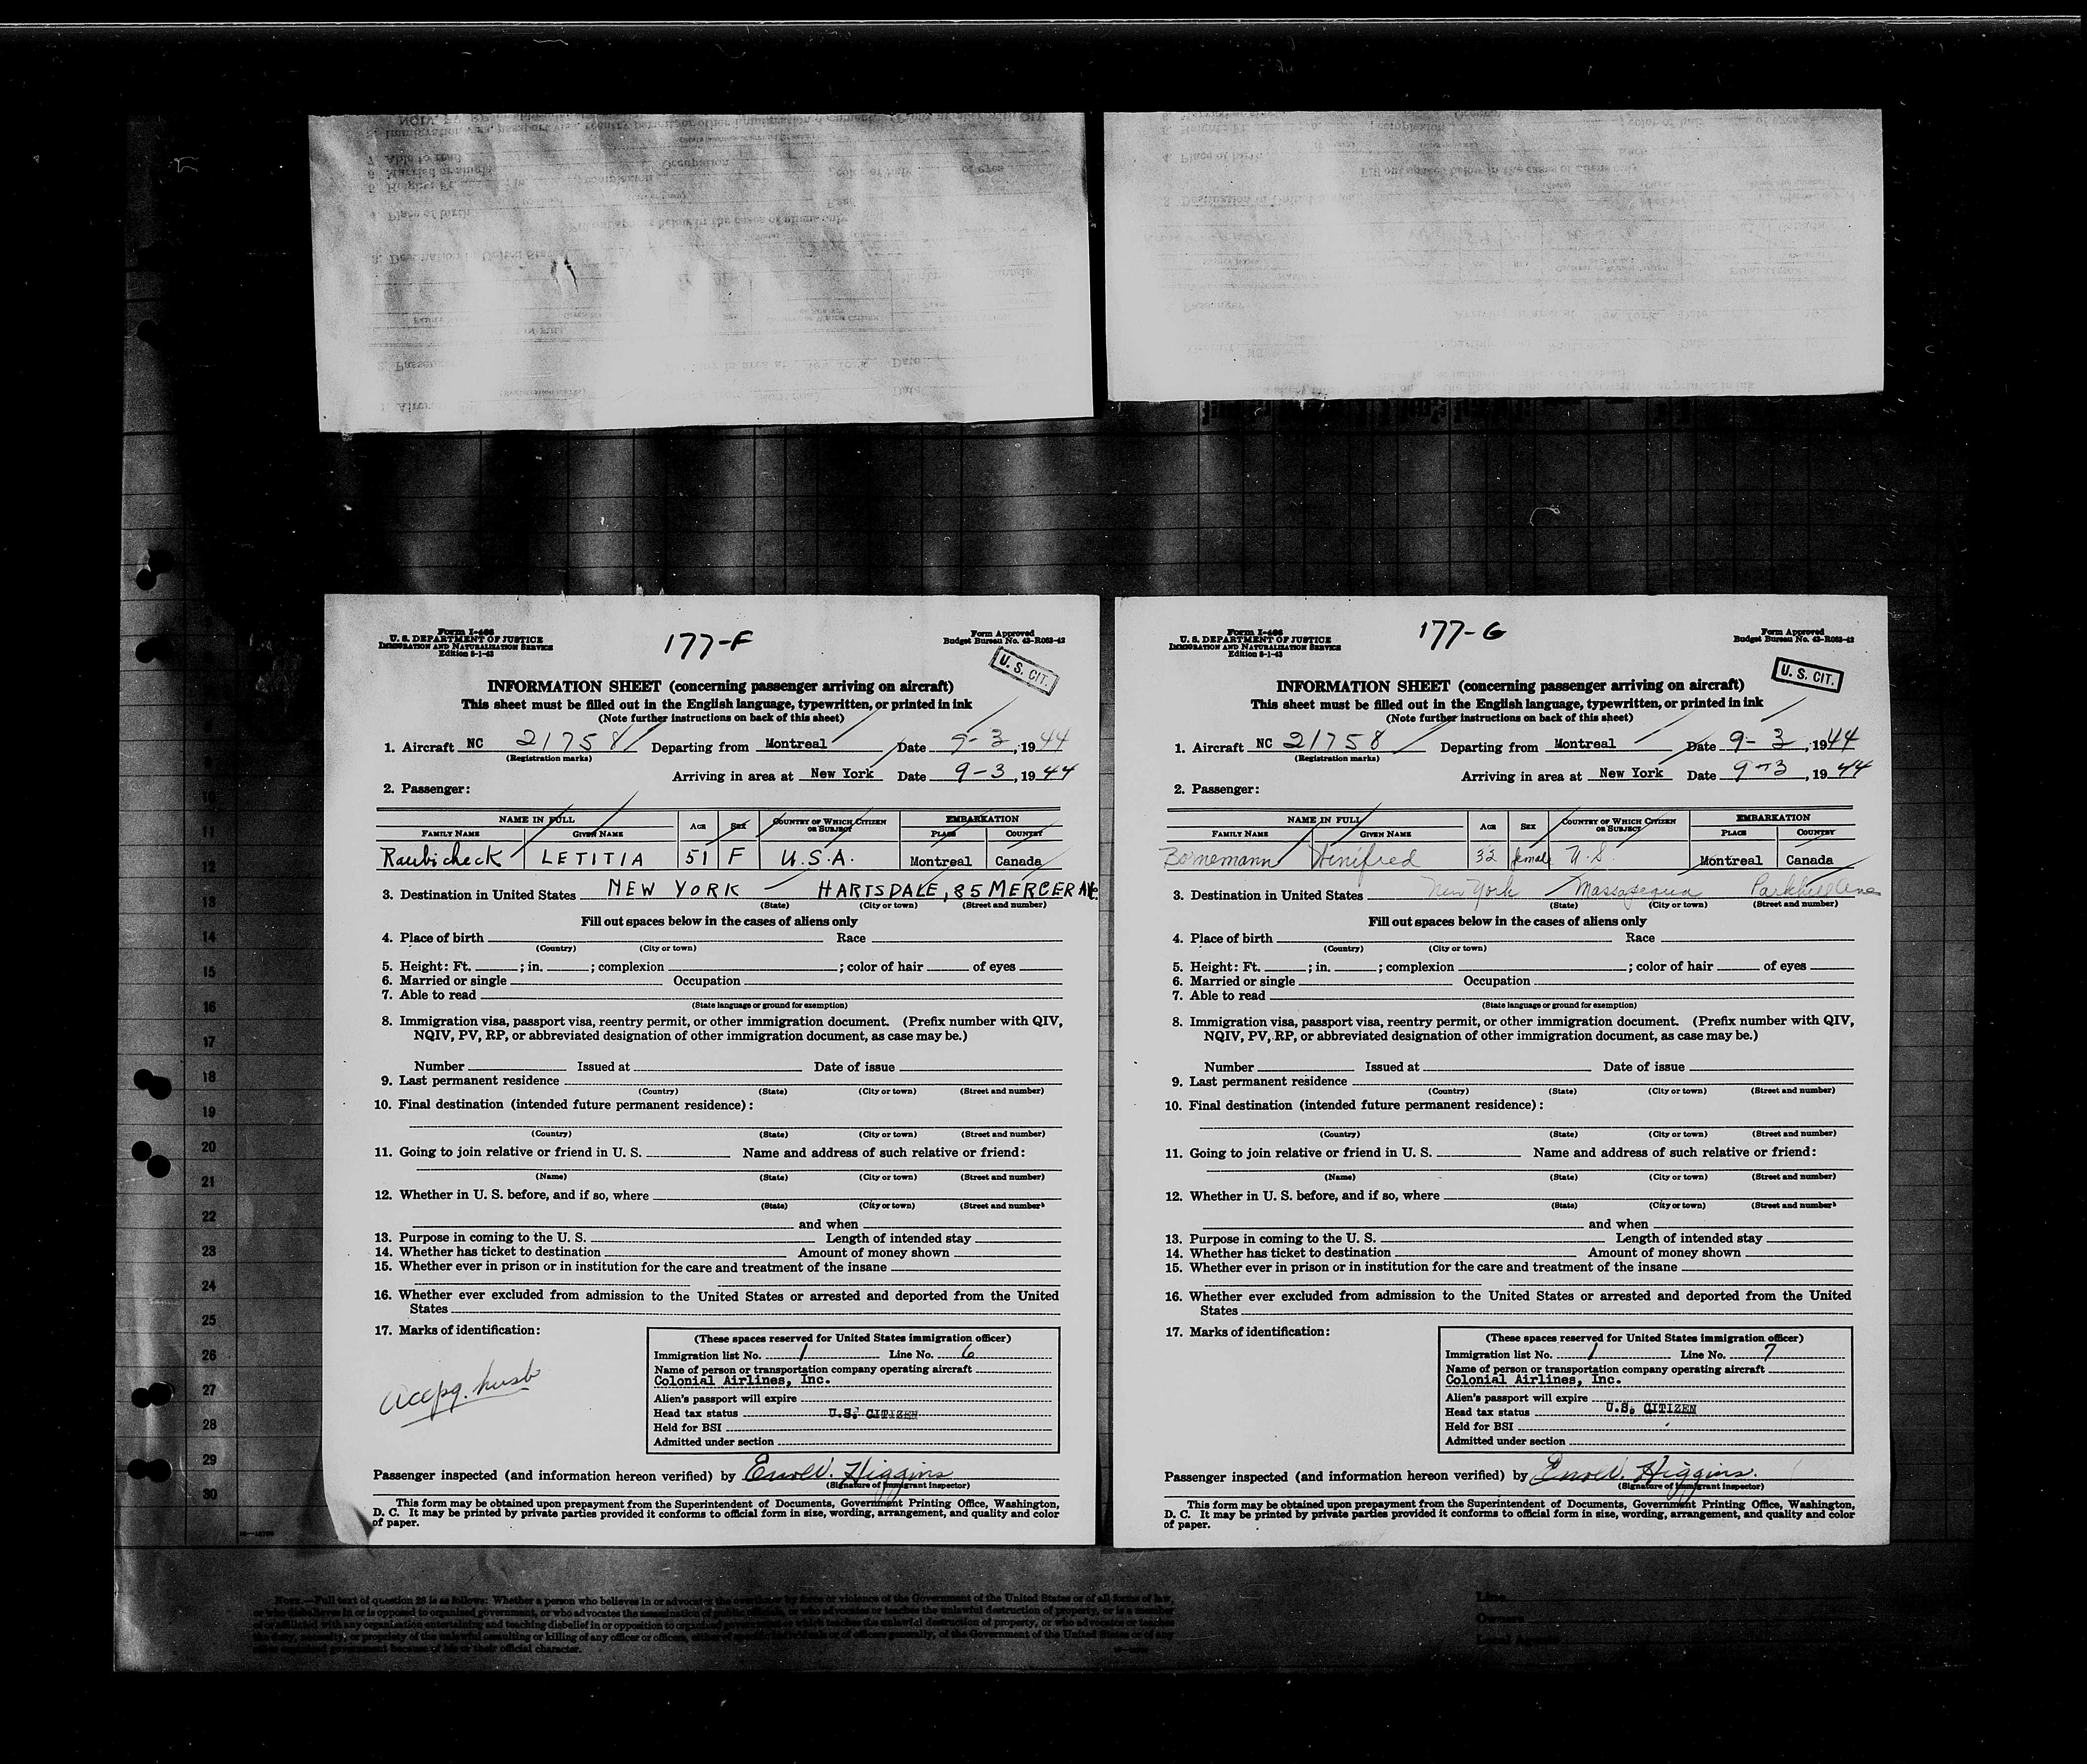 Form I-466
U. S. DEPARTMENT OF JUSTICE
IMMIGRATION AND NATURALIZATION SERVICE
Edition 5-1-43
177-F
Form Approved
Budget Bureau No. 43-R063-42
U. S. CIT.
INFORMATION SHEET (concerning passenger arriving on aircraft)
This sheet must be filled out in the English language, typewritten, or printed in ink
(Note further instructions on back of this sheet)
1. Aircraft NC 21758 Departing from Montreal Date 9-3, 1944
(Registration marks)
Arriving in area at New York Date 9-3, 1944
2. Passenger:
NAME IN FULL AGE SEX COUNTRY OF WHICH CITIZEN OR SUBJECT EMBARKATION
FAMILY NAME GIVEN NAME PLACE COUNTRY
Raubicheck LETITIA 51 F U.S.A. Montreal Canada
3. Destination in United States NEW YORK HARTSDALE, 85 MERCER AVE.
(State) (City or town) (Street and number)
Fill out spaces below in the cases of aliens only
4. Place of birth Race
(Country) (City or town)
5. Height: Ft. ; in. ; complexion ; color of hair of eyes
6. Married or single Occupation
7. Able to read
(State language or ground for exemption)
8. Immigration visa, passport visa, reentry permit, or other immigration document. (Prefix number with QIV,
NQIV, PV, RP, or abbreviated designation of other immigration document, as case may be.)
Number Issued at Date of issue
9. Last permanent residence
(Country) (State) (City or town) (Street and number)
10. Final destination (intended future permanent residence):
(Country) (State) (City or town) (Street and number)
11. Going to join relative or friend in U. S. Name and address of such relative or friend:
(Name) (State) (City or town) (Street and number)
12. Whether in U. S. before, and if so, where
(State) (City or town) (Street and number)
and when
13. Purpose in coming to the U. S. Length of intended stay
14. Whether has ticket to destination Amount of money shown
15. Whether ever in prison or in institution for the care and treatment of the insane
16. Whether ever excluded from admission to the United States or arrested and deported from the United
States
17. Marks of identification:
Accpg. husb
(These spaces reserved for United States immigration officer)
Immigration list No. 1 Line No. 6
Name of person or transportation company operating aircraft
Colonial Airlines, Inc.
Alien's passport will expire
Head tax status U.S. CITIZEN
Held for BSI
Admitted under section
Passenger inspected (and information hereon verified) by Higgins
(Signature of immigrant inspector)
This form may be obtained upon prepayment from the Superintendent of Documents, Government Printing Office, Washington,
D. C. It may be printed by private parties provided it conforms to official form in size, wording, arrangement, and quality and color
of paper.
Form I-466
U. S. DEPARTMENT OF JUSTICE
IMMIGRATION AND NATURALIZATION SERVICE
Edition 5-1-43
177-G
Form Approved
Budget Bureau No. 43-R063-42
U. S. CIT.
INFORMATION SHEET (concerning passenger arriving on aircraft)
This sheet must be filled out in the English language, typewritten, or printed in ink
(Note further instructions on back of this sheet)
1. Aircraft NC 21758 Departing from Montreal Date 9-3, 1944
(Registration marks)
Arriving in area at New York Date 9-3, 1944
2. Passenger:
NAME IN FULL AGE SEX COUNTRY OF WHICH CITIZEN OR SUBJECT EMBARKATION
FAMILY NAME GIVEN NAME PLACE COUNTRY
Bornemann Winifred 32 female U.S. Montreal Canada
3. Destination in United States New York Massapequa Parkhill Ave
(State) (City or town) (Street and number)
Fill out spaces below in the cases of aliens only
4. Place of birth Race
(Country) (City or town)
5. Height: Ft. ; in. ; complexion ; color of hair of eyes
6. Married or single Occupation
7. Able to read
(State language or ground for exemption)
8. Immigration visa, passport visa, reentry permit, or other immigration document. (Prefix number with QIV,
NQIV, PV, RP, or abbreviated designation of other immigration document, as case may be.)
Number Issued at Date of issue
9. Last permanent residence
(Country) (State) (City or town) (Street and number)
10. Final destination (intended future permanent residence):
(Country) (State) (City or town) (Street and number)
11. Going to join relative or friend in U. S. Name and address of such relative or friend:
(Name) (State) (City or town) (Street and number)
12. Whether in U. S. before, and if so, where
(State) (City or town) (Street and number)
and when
13. Purpose in coming to the U. S. Length of intended stay
14. Whether has ticket to destination Amount of money shown
15. Whether ever in prison or in institution for the care and treatment of the insane
16. Whether ever excluded from admission to the United States or arrested and deported from the United
States
17. Marks of identification:
(These spaces reserved for United States immigration officer)
Immigration list No. 1 Line No. 7
Name of person or transportation company operating aircraft
Colonial Airlines, Inc.
Alien's passport will expire
Head tax status U.S. CITIZEN
Held for BSI
Admitted under section
Passenger inspected (and information hereon verified) by Higgins.
(Signature of immigrant inspector)
This form may be obtained upon prepayment from the Superintendent of Documents, Government Printing Office, Washington,
D. C. It may be printed by private parties provided it conforms to official form in size, wording, arrangement, and quality and color
of paper.
11
12
13
14
15
16
17
18
19
20
21
22
23
24
25
26
27
28
29
30
NOTE.—Full text of question 28 is as follows: Whether a person who believes in or advocates the overthrow by force or violence of the Government of the United States or of all forms of law,
or who disbelieves in or is opposed to organized government, or who advocates the assassination of public officials, or who advocates or teaches the unlawful destruction of property, or is a member
Line
Owners
Local Agents